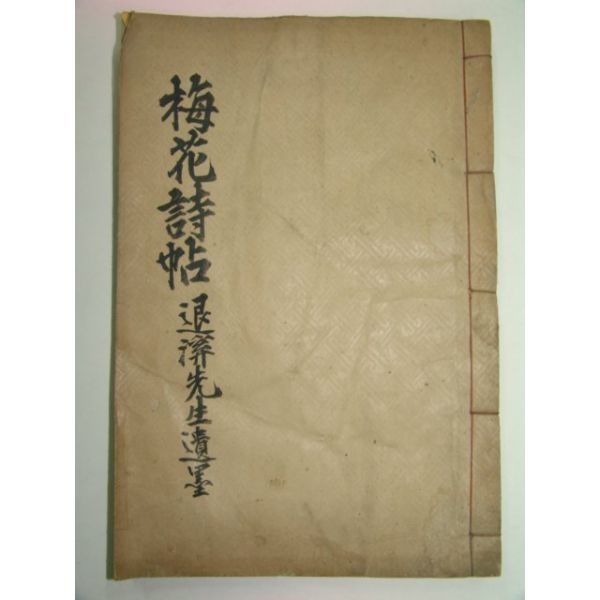 梅花詩帖 退溪先生遺墨